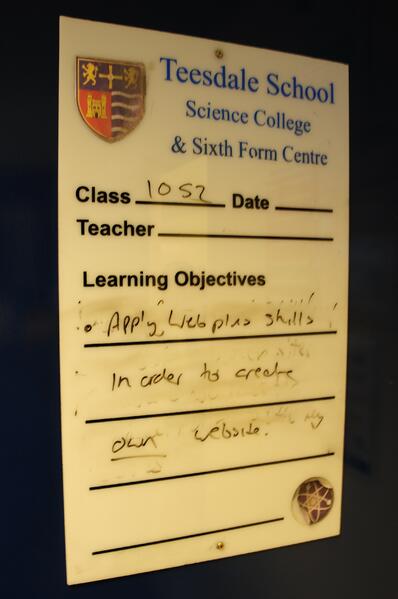 Teesdale School
Science College
& Sixth Form Centre
Class 10S2 Date
Teacher
Learning Objectives
• Apply Webplus skills
In order to create
own website.